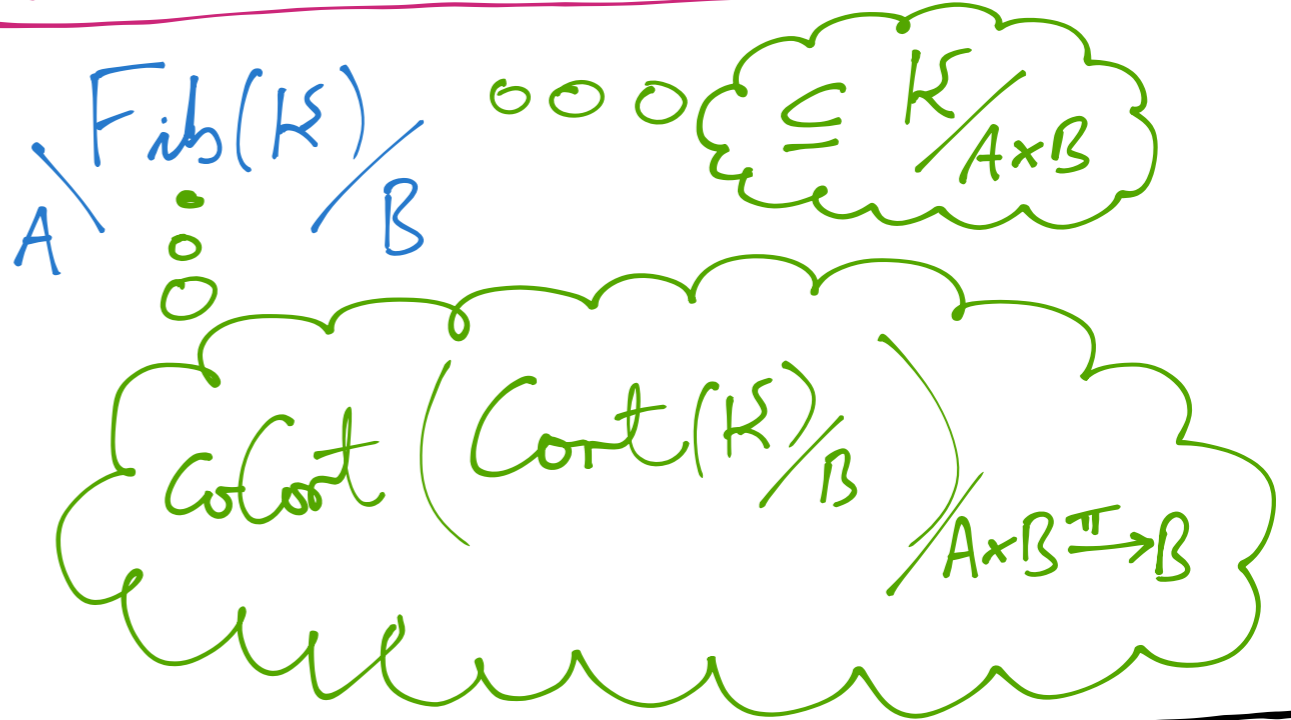 A\Fib(K)/B
⊆ K/A×B
coCart(Cart(K)/B)/A×B →π B